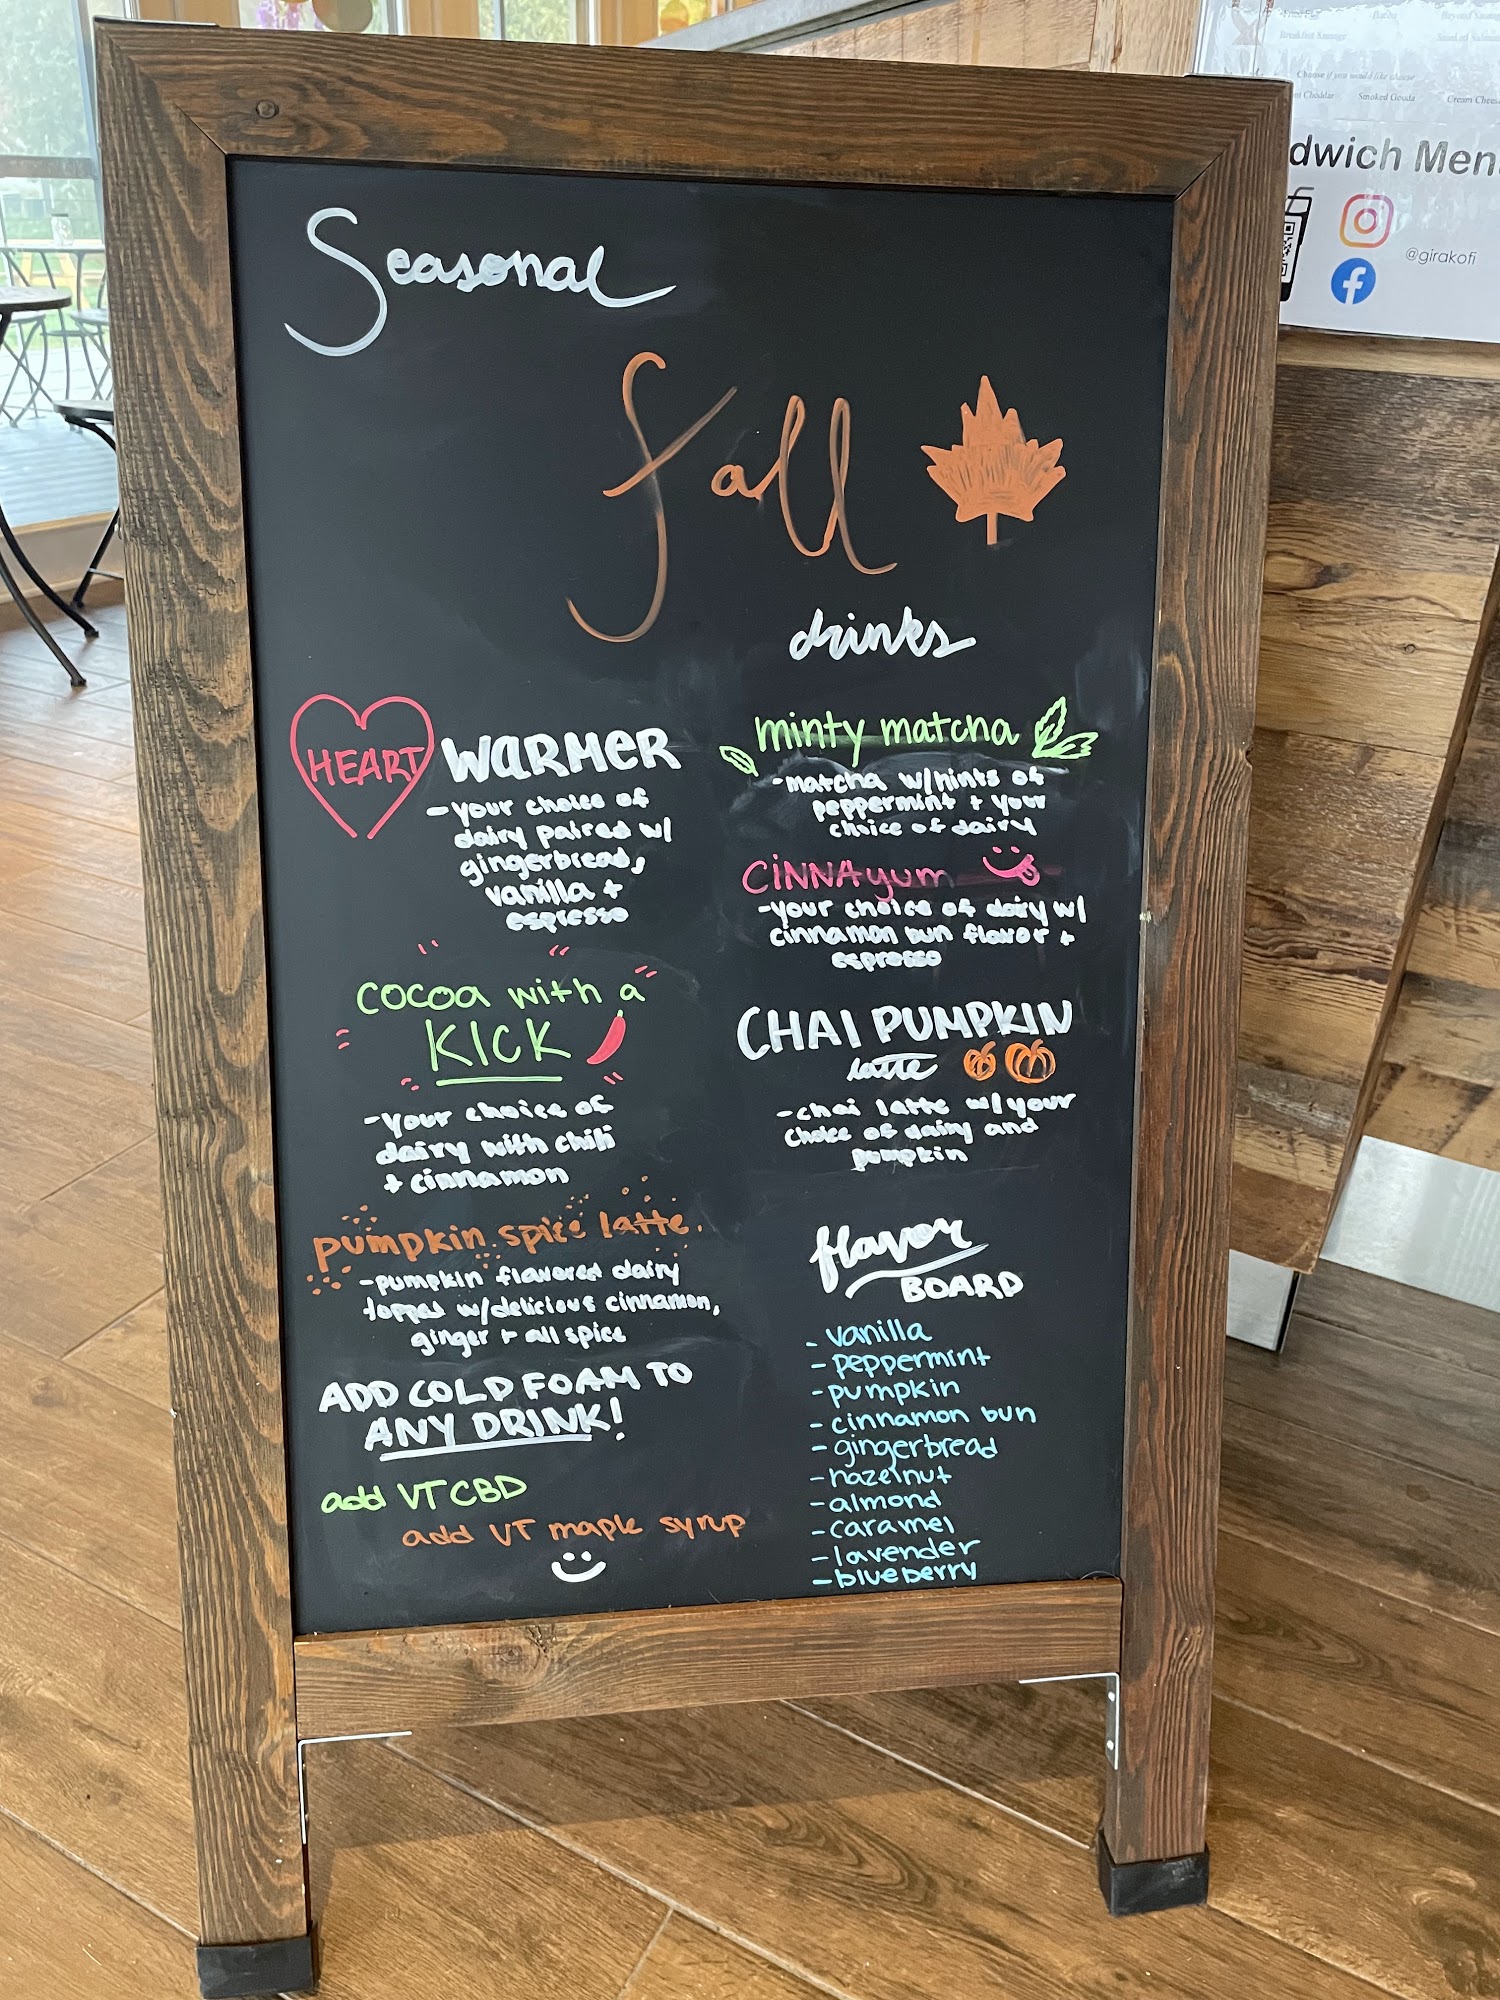 Seasonal
Fall
drinks
HEART WARMER
-your choice of
dairy paired w/
gingerbread,
vanilla +
espresso
cocoa with a
KICK
-Your choice of
dairy with chili
+ cinnamon
pumpkin spice latte.
-pumpkin flavored dairy
topped w/delicious cinnamon,
ginger + all spice
ADD COLD FOAM TO
ANY DRINK!
add VT CBD
add VT maple syrup
minty matcha
-matcha w/hints of
peppermint + your
choice of dairy
CINNAyum
-your choice of dairy w/
cinnamon bun flavor +
espresso
CHAI PUMPKIN
latte
-chai latte w/your
choice of dairy and
pumpkin
flavor
BOARD
- vanilla
- peppermint
- pumpkin
- cinnamon bun
- gingerbread
- hazelnut
- almond
- caramel
- lavender
- blueberry
Breakfast Sausage
Choose if you would like cheese
Cheddar Smoked Gouda Cream Chees
dwich Men
@girakofi